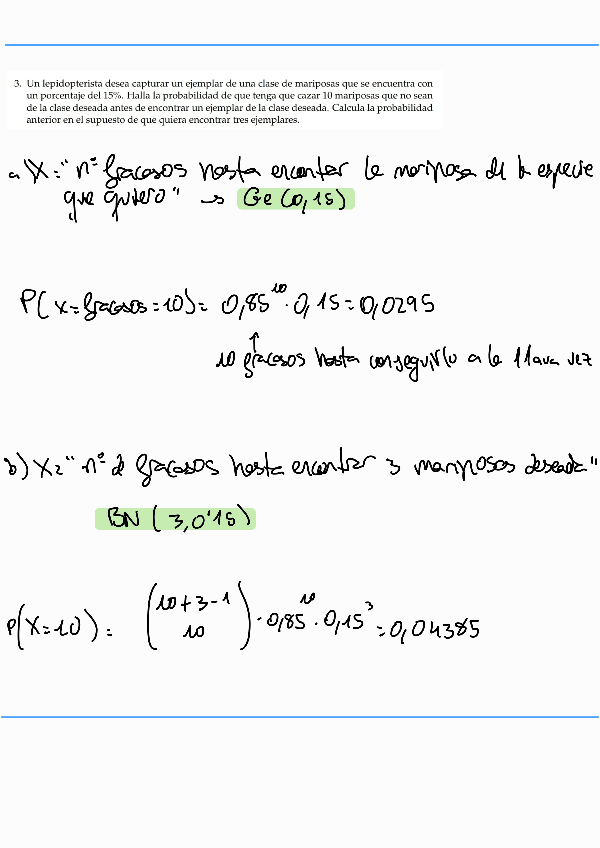 3. Un lepidopterista desea capturar un ejemplar de una clase de mariposas que se encuentra con
un porcentaje del 15%. Halla la probabilidad de que tenga que cazar 10 mariposas que no sean
de la clase deseada antes de encontrar un ejemplar de la clase deseada. Calcula la probabilidad
anterior en el supuesto de que quiera encontrar tres ejemplares.
a) X = "nº fracasos hasta encontrar la mariposa de la especie
que quiero" → Ge (0,15)
P(x=fracasos=10) = 0,85^10 · 0,15 = 0,0295
↑
10 fracasos hasta conseguirlo a la 11ava vez
b) X = "nº de fracasos hasta encontrar 3 mariposas deseada"
BN (3,0'15)
P(X=10) = (10+3-1 10) · 0,85^10 · 0,15^3 = 0,04385